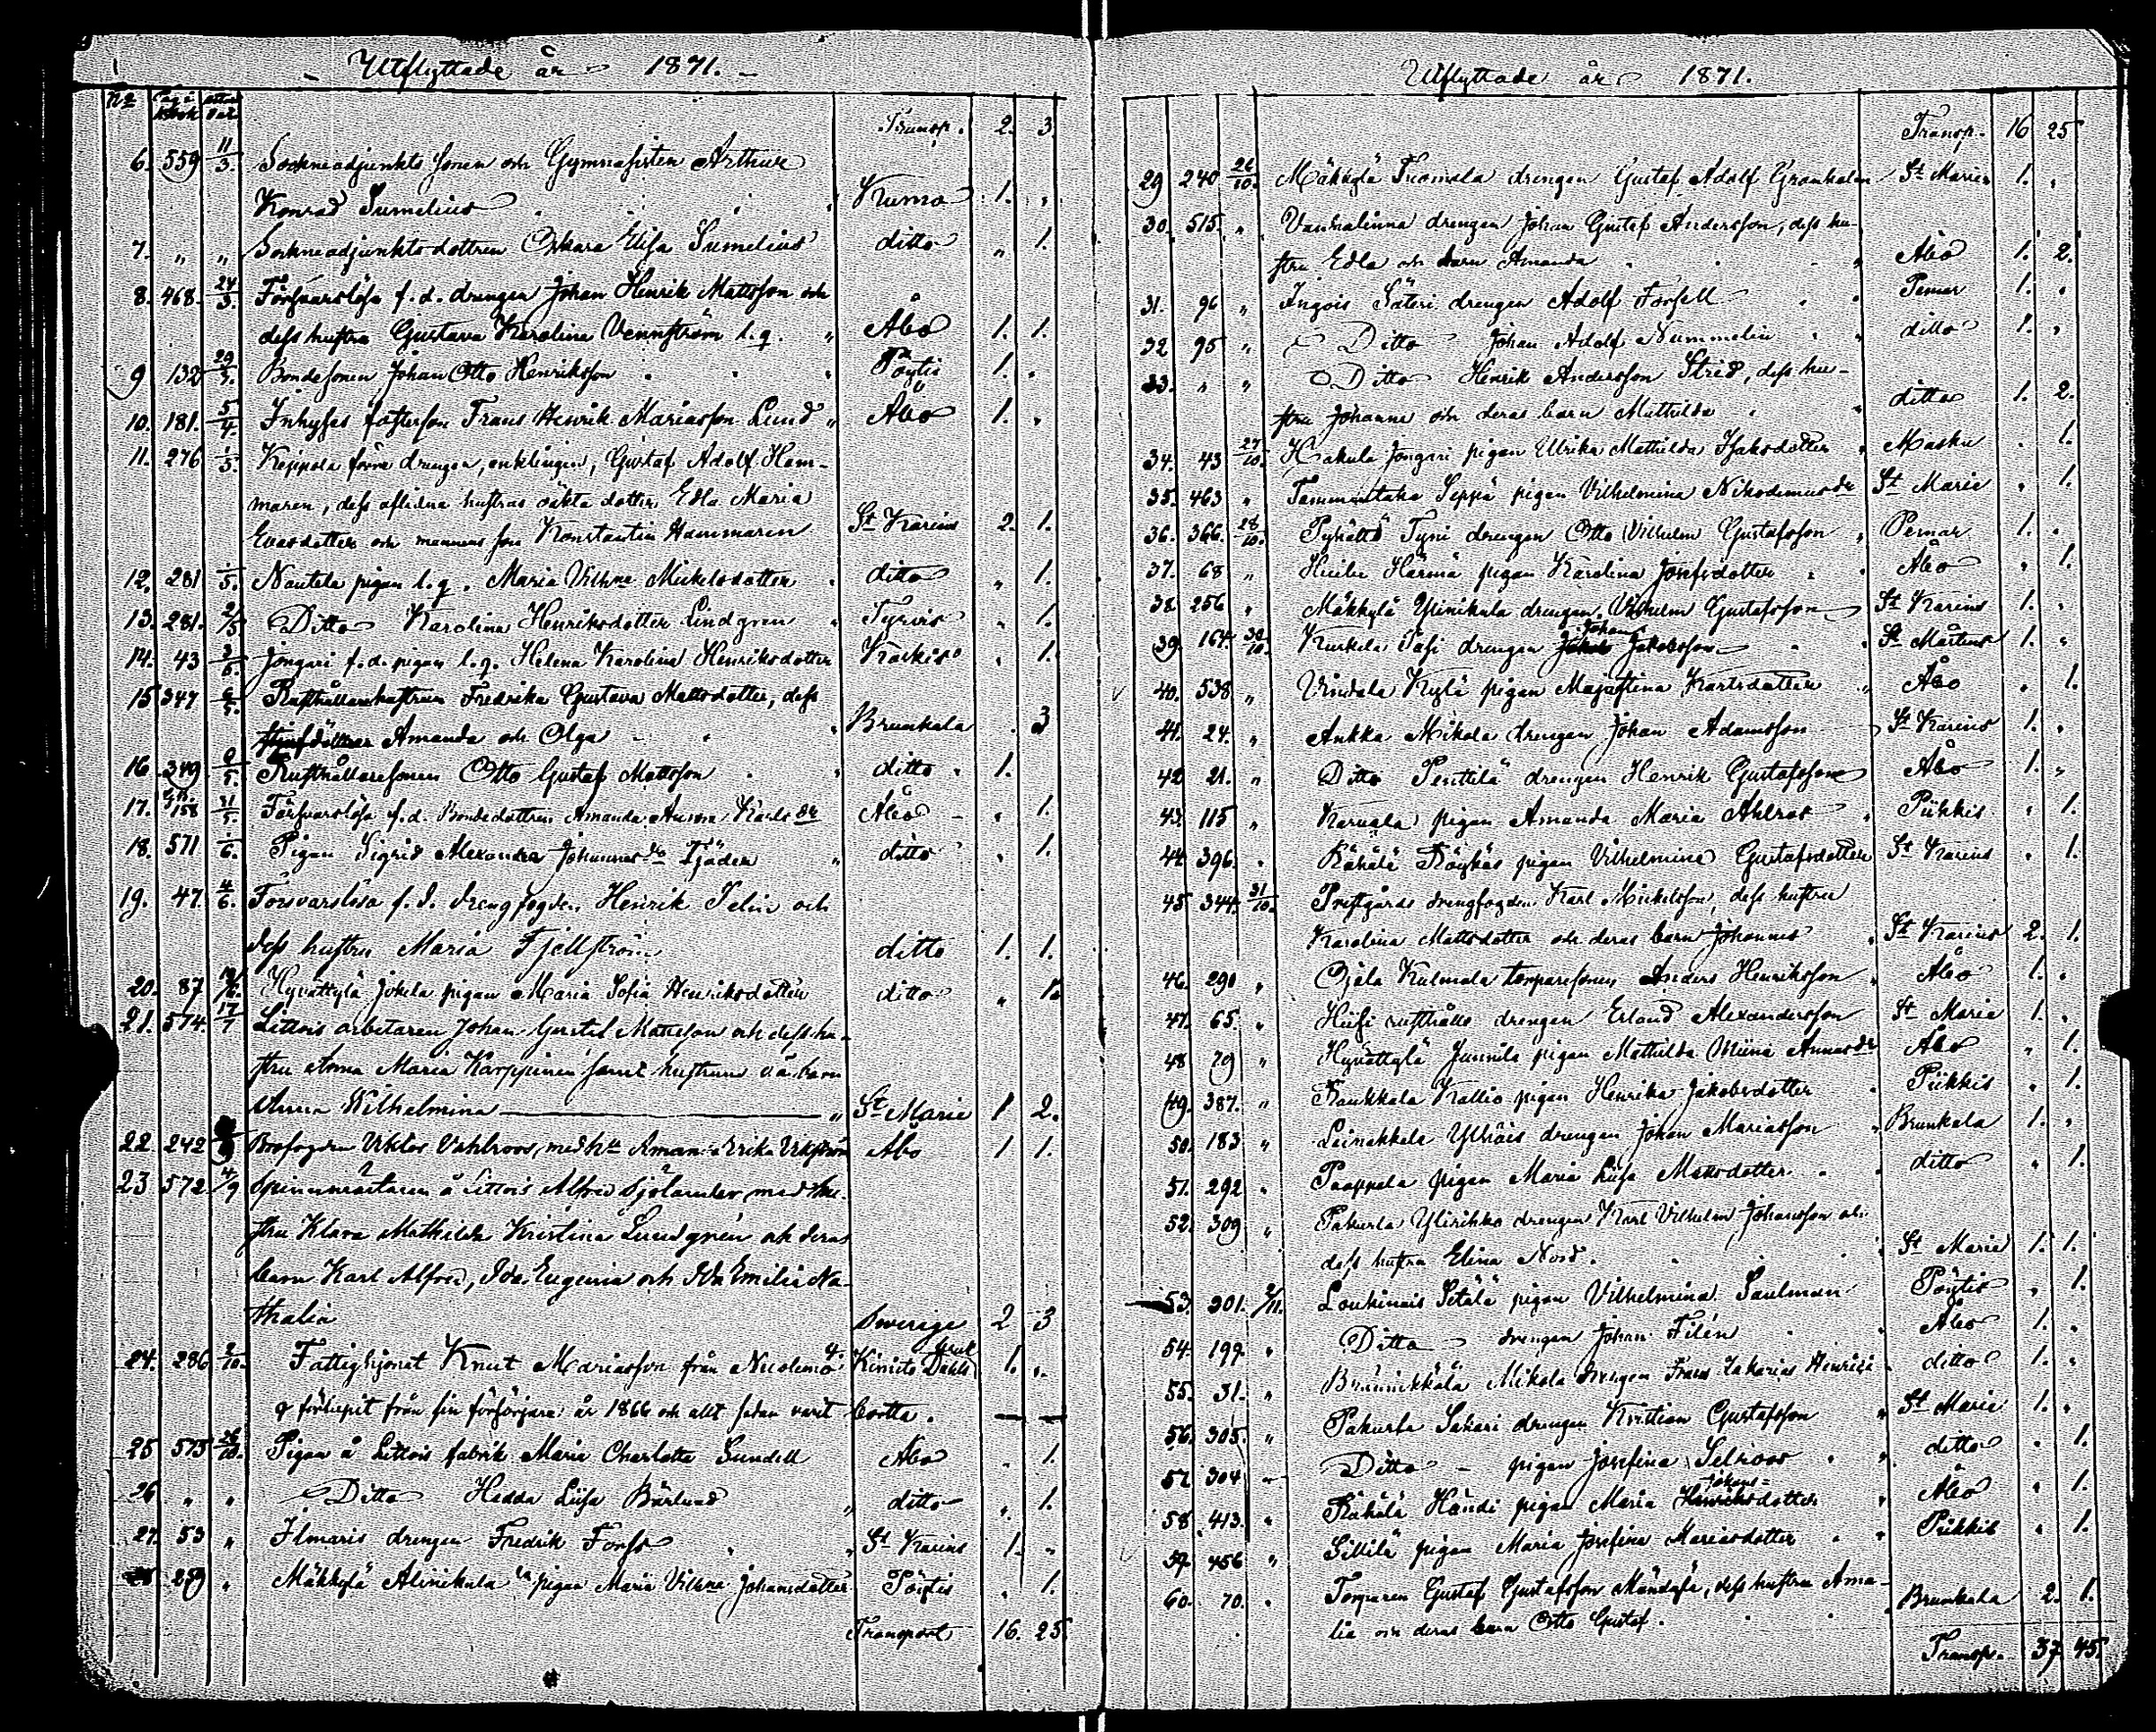 Utflyttade år 1871.
No Pag. i bok
Transp. 2. 3.
6. 559 11/3. Sockneadjunkts sonen och Gymnasisten Arthur
Konrad Sumelius Kumo 1. „
7. „ „ Sockneadjunktsdottren Oskara Elisa Sumelius ditto „ 1.
8. 468. 24/3. Försvarslösa f. d. drengen Johan Henrik Mattsson och
dess hustru Gustava Karolina Vennström l. q. „ Åbo 1. 1.
9 132 29/3. Bondesonen Johan Otto Henriksson Pöytis 1. „
10. 181. 5/4. Inhyses Frans Henrik Mariasson Lund „ Åbo 1. „
11. 276 1/5. förre drengen, enklingen, Gustaf Adolf Ham-
maren, dess aflidna hustrus oäkta dotter Edla Maria
Evasdotter och mannens son Konstantin Hammaren St Karins 2. 1.
12. 281 1/5. Nautela pigan l. q. Maria Vilhna Mickelsdotter ditto „ 1.
13. 281. 2/5. Ditto Karolina Henriksdotter Lindgren „ Tyrvis „ 1.
14. 43 3/5. Jongari f. d. pigan l. q. Helena Karolina Henriksdotter Karkis „ 1.
15 347 6/5. Rusthållarehustrun Fredrika Gustava Mattsdotter, dess
Amanda och Olga „ Brunkala . 3
16. 349 9/5. Rusthållaresonen Otto Gustaf Mattsson „ ditto 1.
17. 158 31/5. Försvarslösa f. d. Bondedottren Amanda Aurora Karlsdr Åbo „ 1.
18. 571 1/6. Pigan Sigrid Alexandra Johannesdr Tjäder „ ditto „ 1.
19. 47. 4/6. Försvarslösa f. d. drengfogden Henrik Felin och
dess hustru Maria Fjellström ditto 1. 1.
20. 87 Hyvättylä Jokela pigan Maria Sofia Henriksdotter ditto „ 1.
21. 574. 17/7 Littois arbetaren Johan Gustaf Mattsson och dess hu-
stru Anna Maria Karppinen samt hustruns oä barn
Anna Wilhelmina „ St Marie 1 2.
22. 242 Brofogden Viktor Vahlroos, med hu Amanda Erika Vikström Åbo 1 1.
23 572 4/9 Spinnmästaren å Littois Alfred Sjölander med hu-
stru Klara Mathilda Kristina Lundgrén och deras
barn Karl Alfred, Ida Eugenia och Ida Emilia Na-
thalia Sverige 2 3
24. 286 2/10. Fattighjonet Knut Mariasson från Kimito 1. „
förlupit från sin försörjare år 1866 och allt sedan varit borta. — —
25 575 26/10. Pigan å Littois fabrik Maria Charlotta Sundell Åbo „ 1.
26 „ „ Ditto Hedda Lisa Bärlund „ ditto „ 1.
27. 53 „ Ilmaris drengen Fredrik Forss „ St Karins 1. „
28 259 „ Mäkkylä Alinikula pigan Maria Vilhna Johansdotter Pöytis „ 1.
Transport 16. 25.
Utflyttade år 1871.
Transp. 16 25
29 240 26/10. Mäkkylä Tuomola drengen Gustaf Adolf Grankulen St Marie 1. „
30. 515. „ Vanhalinna drengen Johan Gustaf Andersson, dess hu-
stru Edla och barn Amanda „ Åbo 1. 2.
31. 96 „ Ingois Säteri drengen Adolf Forsell Pemar 1. „
32 95 „ Ditto Johan Adolf Nummelin ditto 1. „
33. „ „ Ditto Henrik Andersson Strid, dess hu-
stru Johanna och deras barn Mathilda ditto 1. 2.
34. 43 27/10. Kakula Jongari pigan Ulrika Mathilda Isaksdotter „ Masku . 1.
35. 463 „ Tammentaka Seppä pigan Vilhelmina Nikodemusdr St Marie „ 1.
36. 366. 28/10. Pyhältö Tyni drengen Otto Vilhelm Gustafsson „ Pemar 1. „
37. 68 „ Härmä pigan Karolina Josefsdotter Åbo „ 1.
38. 256 „ Mäkkylä Ylinikula drengen Vilhelm Gustafsson St Karins 1. „
39. 164. 30/10. Kurkela Pasi drengen Johan Jakobsson St Mårtens 1. „
40. 538 „ Vindala Kylä pigan Majastina Karlsdotter „ Åbo „ 1.
41. 24. „ Aukka Mikola drengen Johan Adamsson St Karins 1. „
42 21. „ Ditto Penttilä drengen Henrik Gustafsson Åbo 1. „
43. 115 „ Karvala pigan Amanda Maria Ahlros Piikkis „ 1.
44. 396. „ Rähälä Röykäs pigan Vilhelmina Gustafsdotter St Karins „ 1.
45 344. 31/10. Prestgårds drengfogden Karl Mickelsson, dess hustru
Karolina Mattsdotter och deras barn Johannes St Karins 2. 1.
46. 290 „ Ojala Kulmala torparesonen Anders Henriksson „ Åbo 1. „
47. 65. „ Hiisi rusthålls drengen Erland Alexandersson St Marie 1. „
48 79 „ Hyvättylä Junnila pigan Mathilda Miina Annasdr Åbo „ 1.
49. 387. „ Raukkala Kallio pigan Henrika Jakobsdotter Piikkis „ 1.
50. 183 „ Leinakkala Ylhäis drengen Johan Mariasson „ Brunkala 1. „
51. 292 „ Paappala pigan Maria Lisa Mattsdotter ditto „ 1.
52. 309 „ Pakurla Ylirihko drengen Karl Vilhelm Johansson och
dess hustru Elina Nord. St Marie 1. 1.
53. 301. 2/11. Loukinais Sätälä pigan Vilhelmina Saulman Pöytis „ 1.
54. 199. „ Ditto drengen Johan Filén Åbo 1. „
55. 31. „ Mikola drengen Frans Zakarias Henriksson ditto 1. „
56. 305. „ Pakurla Sakari drengen Kristian Gustafsson „ St Marie 1. „
57. 304 „ Ditto pigan Josefina Selroos ditto „ 1.
58. 413. „ Rähälä Händi pigan Maria Johansdotter Åbo „ 1.
59. 456 „ Sillilä pigan Maria Josefina Mariasdotter Piikkis „ 1.
60. 70. „ Torparen Gustaf Gustafsson Mändasä, dess hustru Ama-
lia och deras barn Otto Gustaf. Brunkala 2. 1.
Transp. 37. 45.